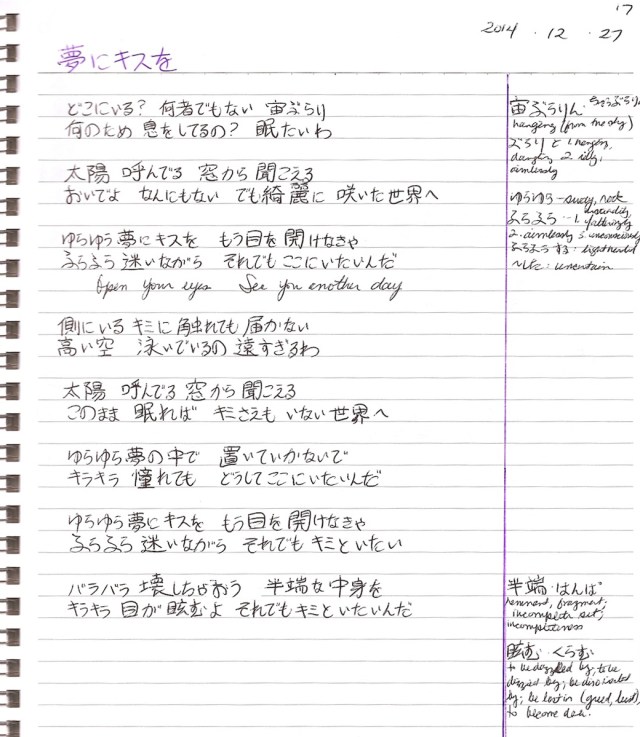 17
2014 . 12 . 27
夢にキスを
どこにいる? 何者でもない 宙ぶらり
何のため 息をしてるの? 眠たいわ
太陽 呼んでる 窓から聞こえる
おいでよ なんにもない でも綺麗に 咲いた世界へ
ゆらゆら夢にキスを もう目を開けなきゃ
ふらふら迷いながら それでもここにいたいんだ
Open your eyes See you another day
側にいるキミに触れても届かない
高い空 泳いでいるの 遠すぎるわ
太陽 呼んでる 窓から聞こえる
このまま 眠れば キミさえも いない世界へ
ゆらゆら夢の中で 置いていかないで
キラキラ 憧れても どうしてここにいたいんだ
ゆらゆら夢にキスを もう目を開けなきゃ
ふらふら 迷いながら それでもキミといたい
バラバラ 壊しちゃおう 半端な中身を
キラキラ 目が眩むよ それでもキミといたいんだ
宙ぶらりん・ちゅうぶらりん
hanging (from the sky)
ぶらりと 1. hanging,
dangling 2. idly,
aimlessly
ゆらゆら - sway, rock
ふらふら - 1. unsteadily
falteringly
2. aimlessly 3. unconsciously
ふらふらする: lightheaded
~した: uncertain
半端・はんぱ
remnant, fragment,
incomplete set;
incompleteness
眩む・くらむ
to be dazzled by; to be
dazed by; be disoriented
by; be lost in (greed, lust),
to become dark.